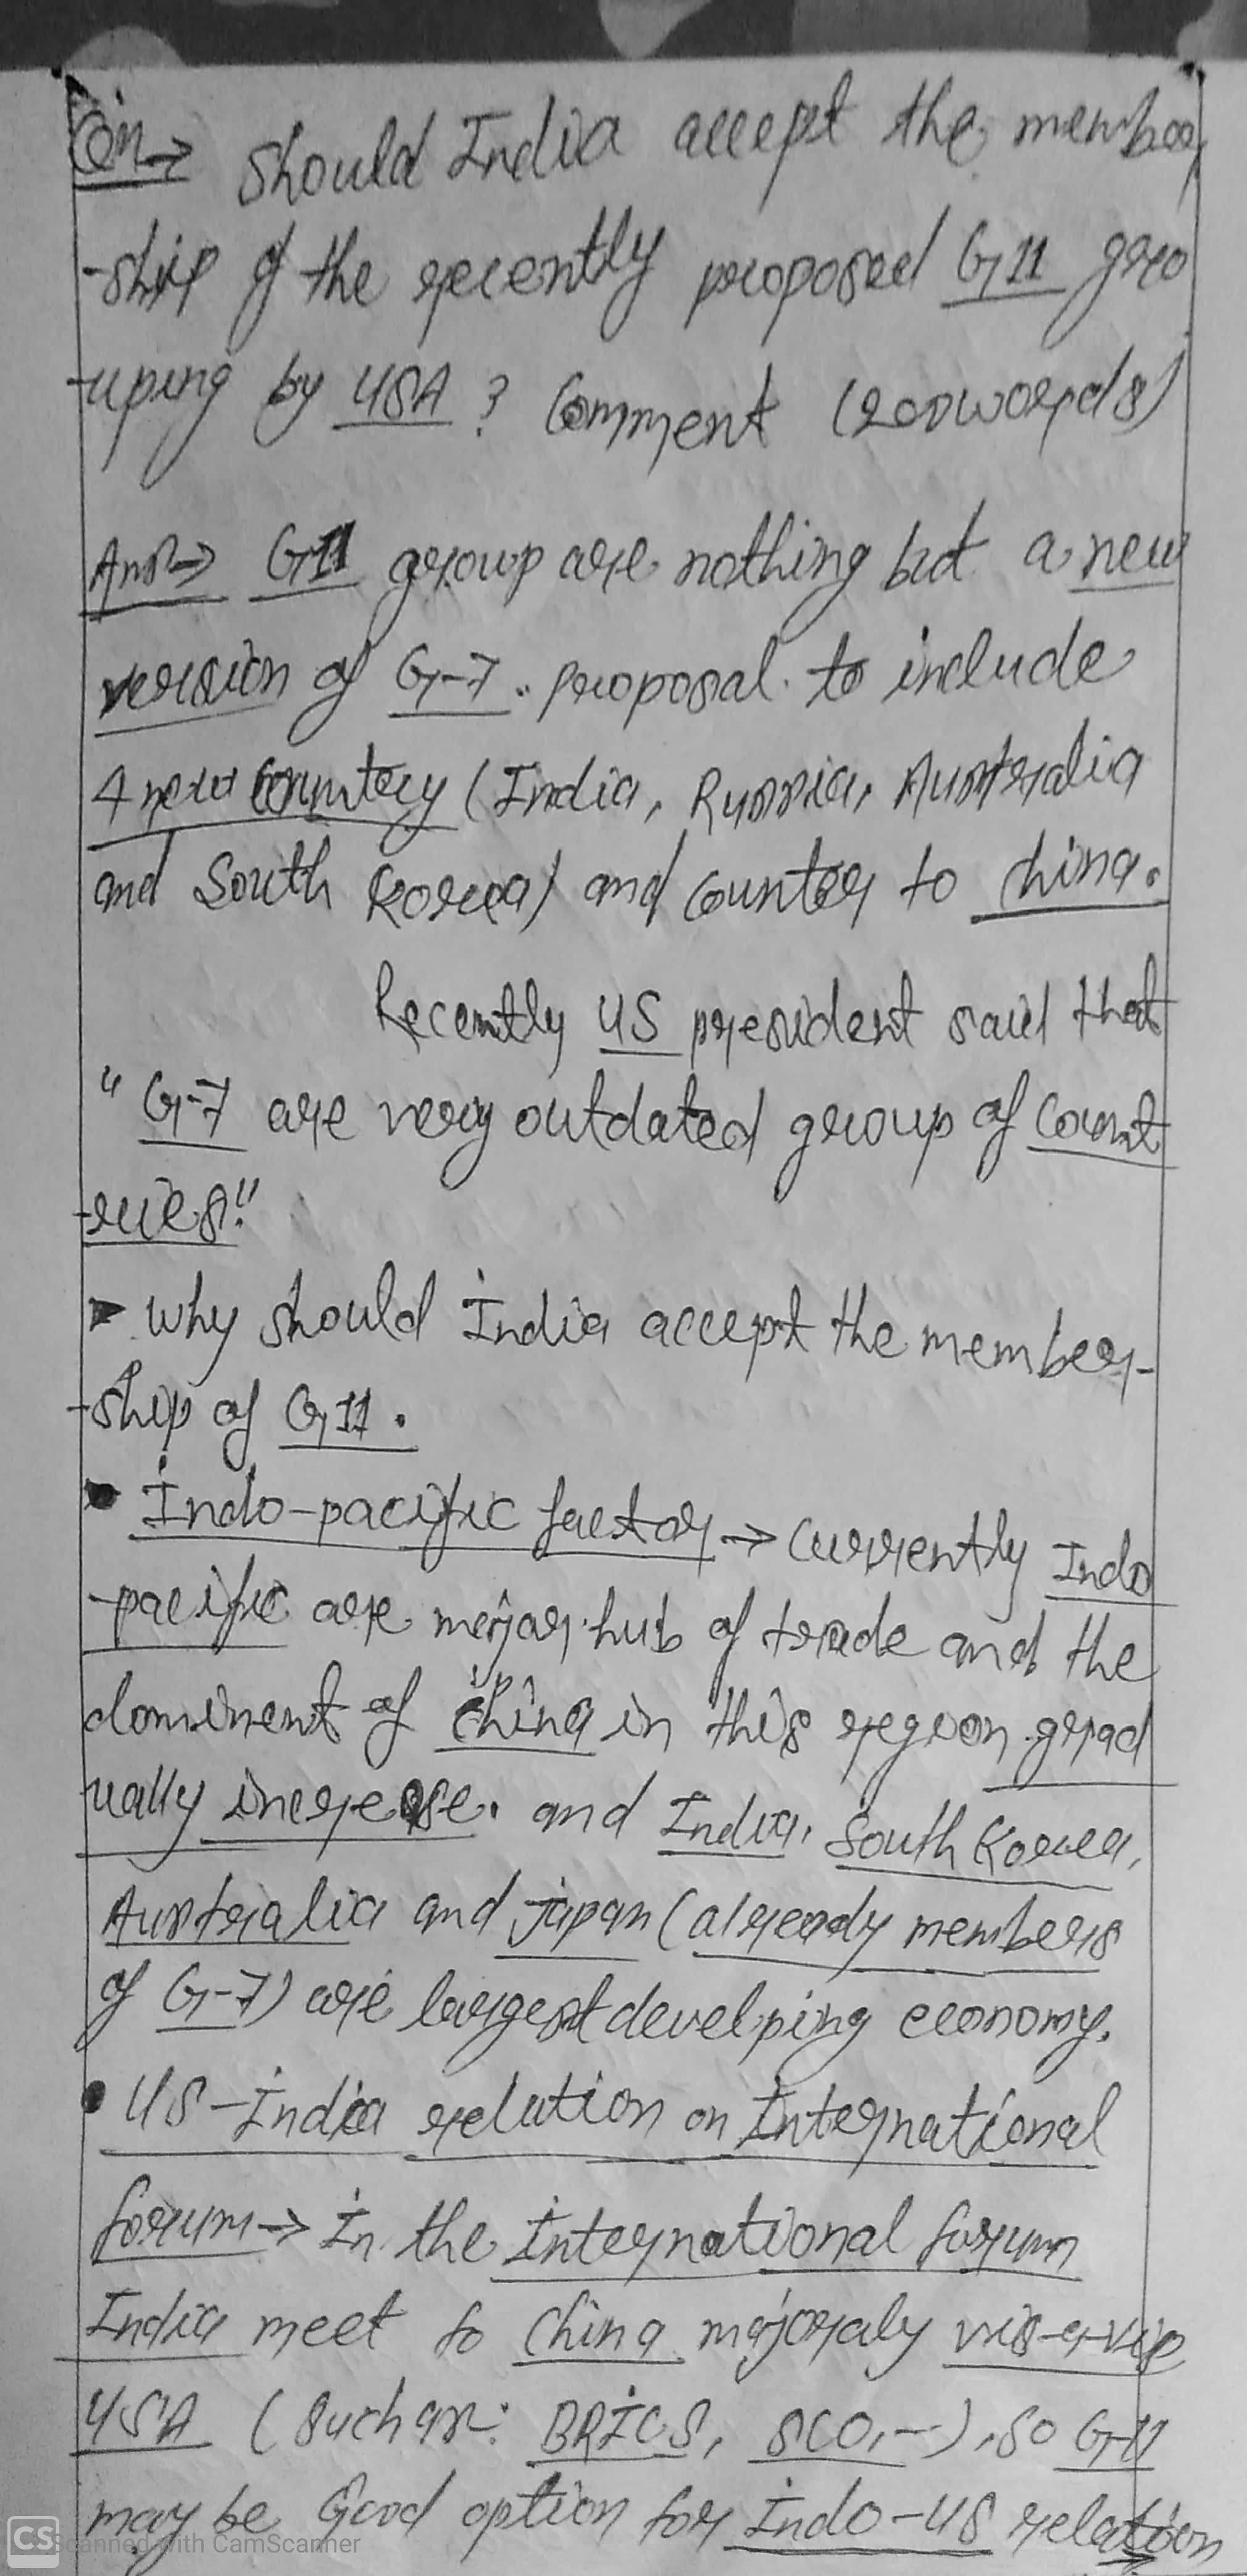 Qn→ Should India accept the member
-ship of the recently proposed G11 gro
-uping by USA ? Comment (200words)
Ans→ G11 group are nothing but a new
version of G-7. proposal to include
4 new country (India, Russia, Australia
and South Korea) and counter to china.
Recently US president said that
"G-7 are very outdated group of count
-ries".
► why should India accept the member-
-ship of G11.
• Indo-pacific factor → currently Indo
-pacific are major hub of trade and the
dominent of china in this region grad
ually increase. and India, South Korea,
Australia and japan (already members
of G-7) are largest develping economy.
• US-India relation on International
forum → In the International forum
India meet to China majoraly vis-a-vis
USA (Such as: BRICS, SCO, --), so G-11
may be Good option for Indo-US relation
CS Scanned with CamScanner